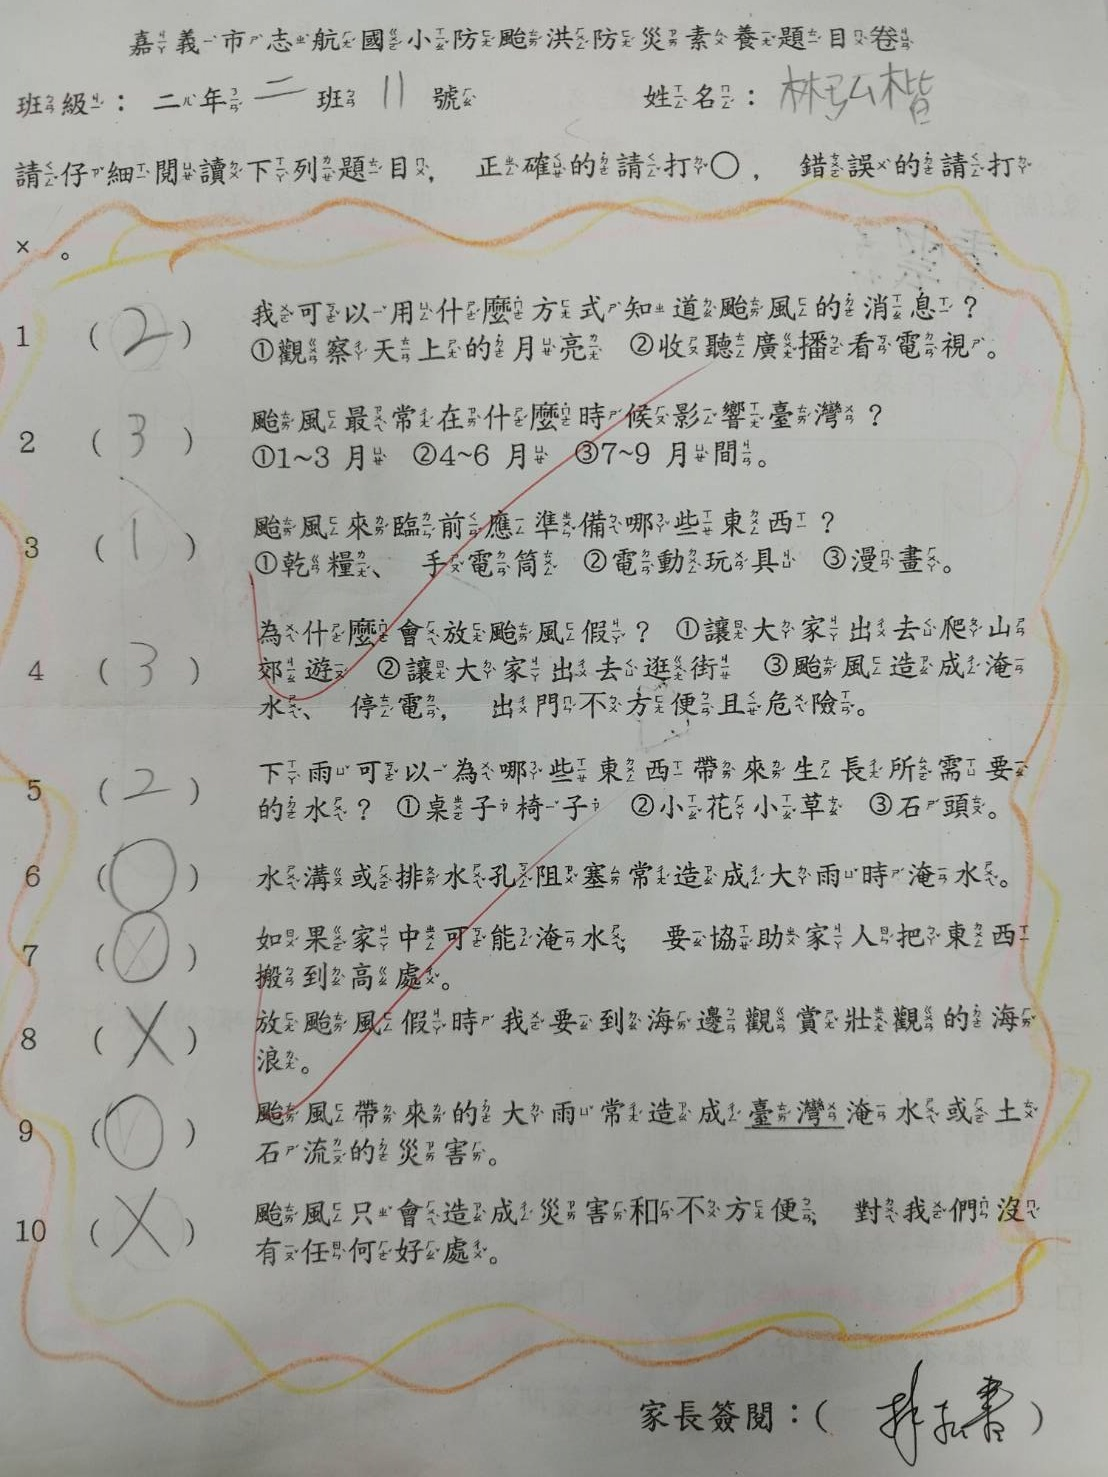 嘉義市志航國小防颱洪防災素養題目卷
班級：二年二班 11 號 姓名：林弘楷
請仔細閱讀下列題目，正確的請打○，錯誤的請打
×。
1 ( 2 ) 我可以用什麼方式知道颱風的消息？
①觀察天上的月亮 ②收聽廣播看電視。
2 ( 3 ) 颱風最常在什麼時候影響臺灣？
①1~3 月 ②4~6 月 ③7~9 月間。
3 ( 1 ) 颱風來臨前應準備哪些東西？
①乾糧、手電筒 ②電動玩具 ③漫畫。
4 ( 3 ) 為什麼會放颱風假？ ①讓大家出去爬山
郊遊 ②讓大家出去逛街 ③颱風造成淹
水、停電，出門不方便且危險。
5 ( 2 ) 下雨可以為哪些東西帶來生長所需要
的水？ ①桌子椅子 ②小花小草 ③石頭。
6 ( ○ ) 水溝或排水孔阻塞常造成大雨時淹水。
7 ( ○ ) 如果家中可能淹水，要協助家人把東西
搬到高處。
8 ( X ) 放颱風假時我要到海邊觀賞壯觀的海
浪。
9 ( ○ ) 颱風帶來的大雨常造成臺灣淹水或土
石流的災害。
10 ( X ) 颱風只會造成災害和不方便，對我們沒
有任何好處。
家長簽閱：( )